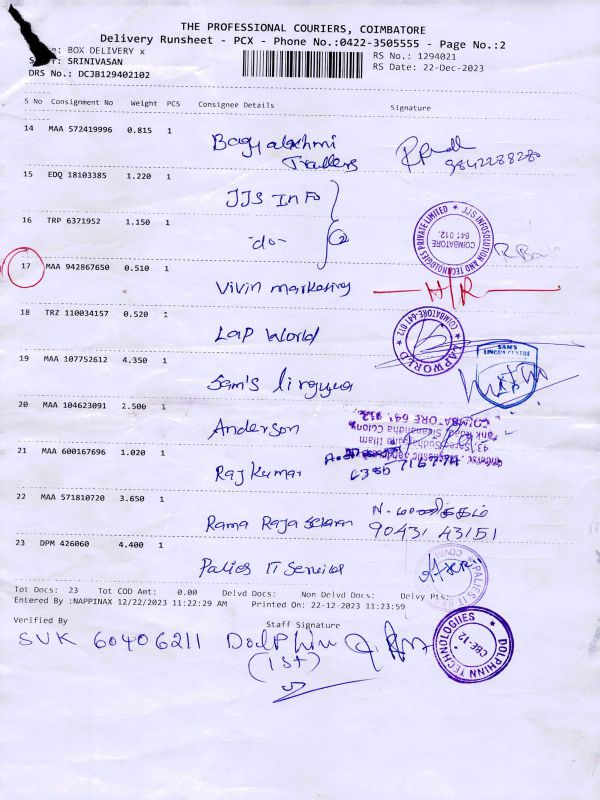 THE PROFESSIONAL COURIERS, COIMBATORE
Delivery Runsheet - PCX - Phone No.:0422-3505555 - Page No.:2
: BOX DELIVERY x
RS No.: 1294021
: SRINIVASAN
RS Date: 22-Dec-2023
DRS No.: DCJB129402102
S No Consignment No Weight PCS Consignee Details Signature
14 MAA 572419996 0.815 1
Bagyalakshmi
Traders
9842288280
15 EDQ 18103385 1.220 1
JJS INFO
16 TRP 6371952 1.150 1
-do- 2
JJS INFOSOLUTION AND TECHNOLOGIES PRIVATE LIMITED
COIMBATORE
641 012.
17 MAA 942867650 0.510 1
Vivin marketing H/R
18 TRZ 110034157 0.520 1
Lap World
LAPWORLD COIMBATORE-641 012
19 MAA 107752612 4.350 1
SAM'S
LINGUA CENTRE
Sam's lingyua
20 MAA 104623091 2.500 1
Anderson
COIMBATORE 641 012
21 MAA 600167696 1.020 1
Rajkumar
22 MAA 571810720 3.650 1
Rama Rajasekaran
90431 43151
23 DPM 426060 4.400 1
Palios IT Services
Tot Docs: 23 Tot COD Amt: 0.00 Delvd Docs: Non Delvd Docs: Delvy Pts:
Entered By :NAPPINAX 12/22/2023 11:22:29 AM Printed On: 22-12-2023 11:23:59
Verified By Staff Signature
SVK 60406211 Dolphin
(1st)
DOLPHINN TECHNOLOGIES
CBE-12